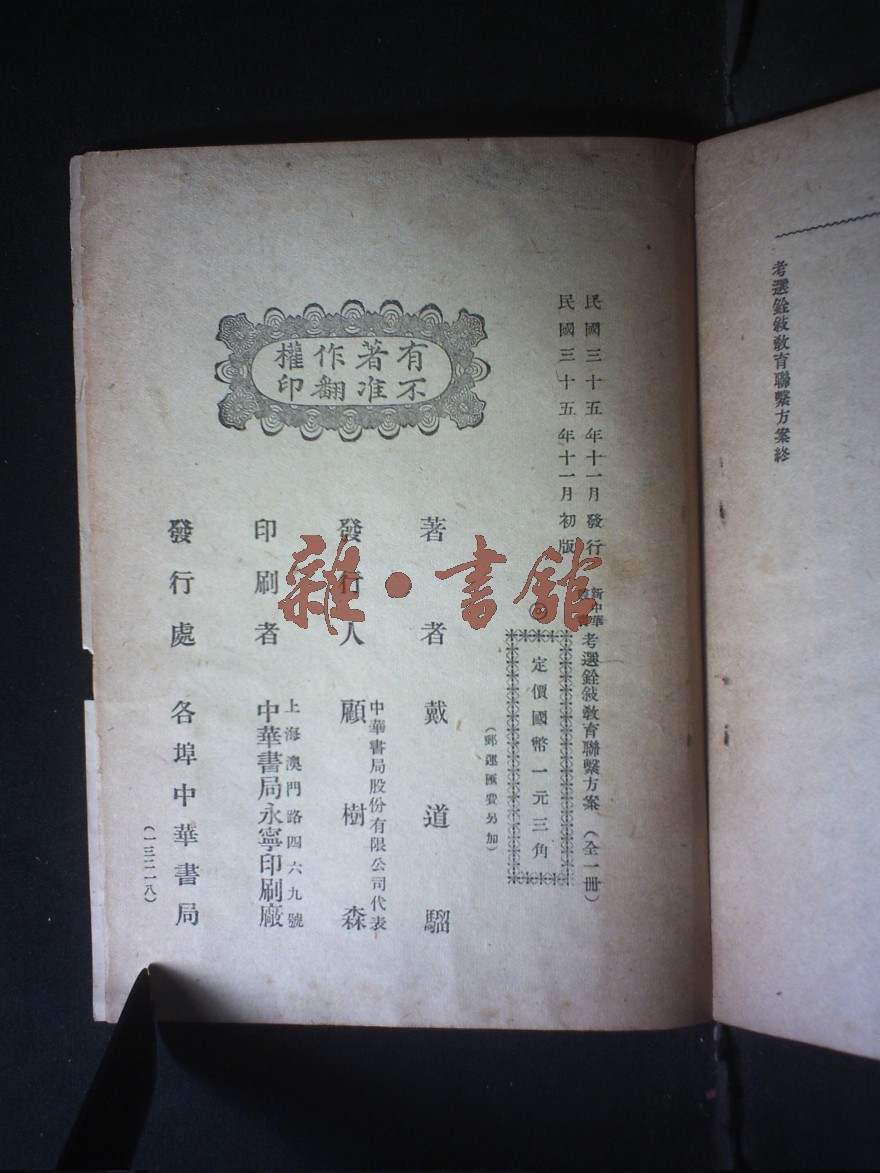 考選銓敍教育聯繫方案終
民國三十五年十一月發行
民國三十五年十一月初版
新中華
叢書
考選銓敍教育聯繫方案（全一冊）
定價國幣一元三角
（郵運匯費另加）
有著作權
不准翻印
著者戴道騮
發行人顧樹森
中華書局股份有限公司代表
印刷者
上海澳門路四六九號
中華書局永寧印刷廠
發行處各埠中華書局
（一三二一八）
雜·書館